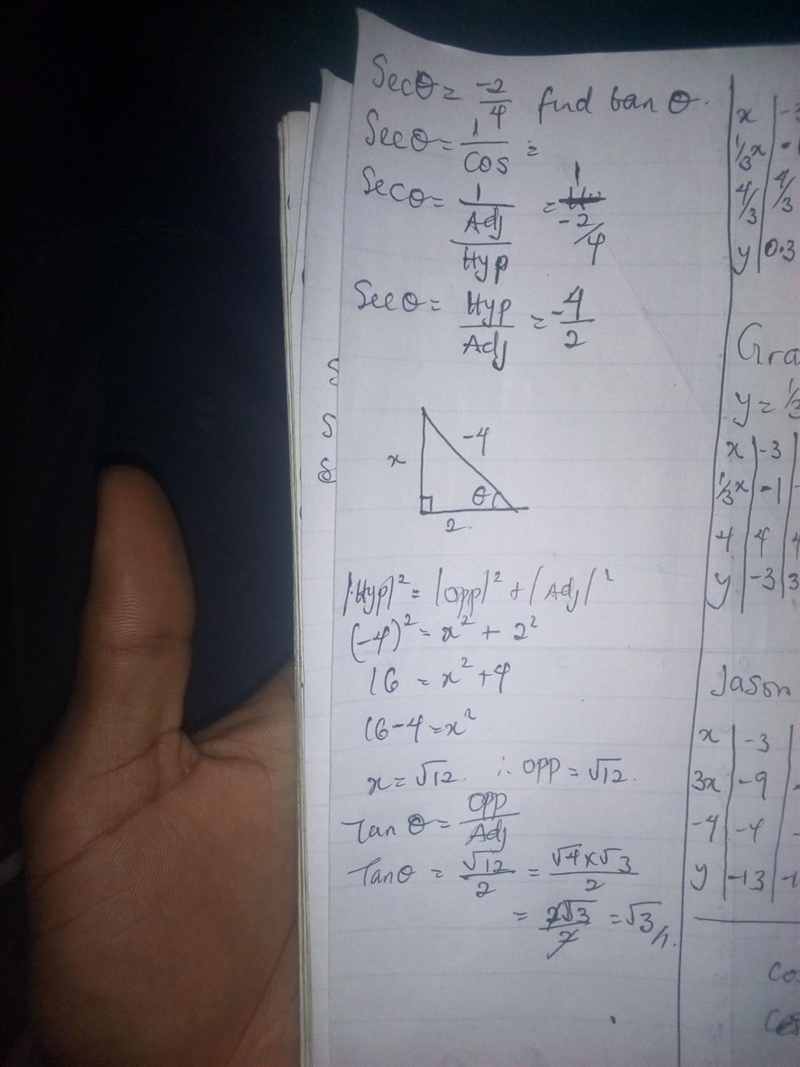 Secθ = -2/4 find tan θ.
Secθ = 1/Cos =
Secθ = 1/(Adj/Hyp) = 1/(-2/4)
Secθ = Hyp/Adj = -4/2
x
-4
θ
2.
|Hyp|² = |Opp|² + |Adj|²
(-4)² = x² + 2²
16 = x² + 4
16-4 = x²
x = √12. ∴ Opp = √12.
Tan θ = Opp/Adj
Tanθ = √12/2 = √4 x √3/2
= 2√3/2 = √3//.
x
1/3x
4/3 4/3
y 0.3
Gra
y = 1/3
x -3
1/3x -1
4 4
y -3 3
Jason
x -3
3x -9
-4 -4
y -13 -1
Co